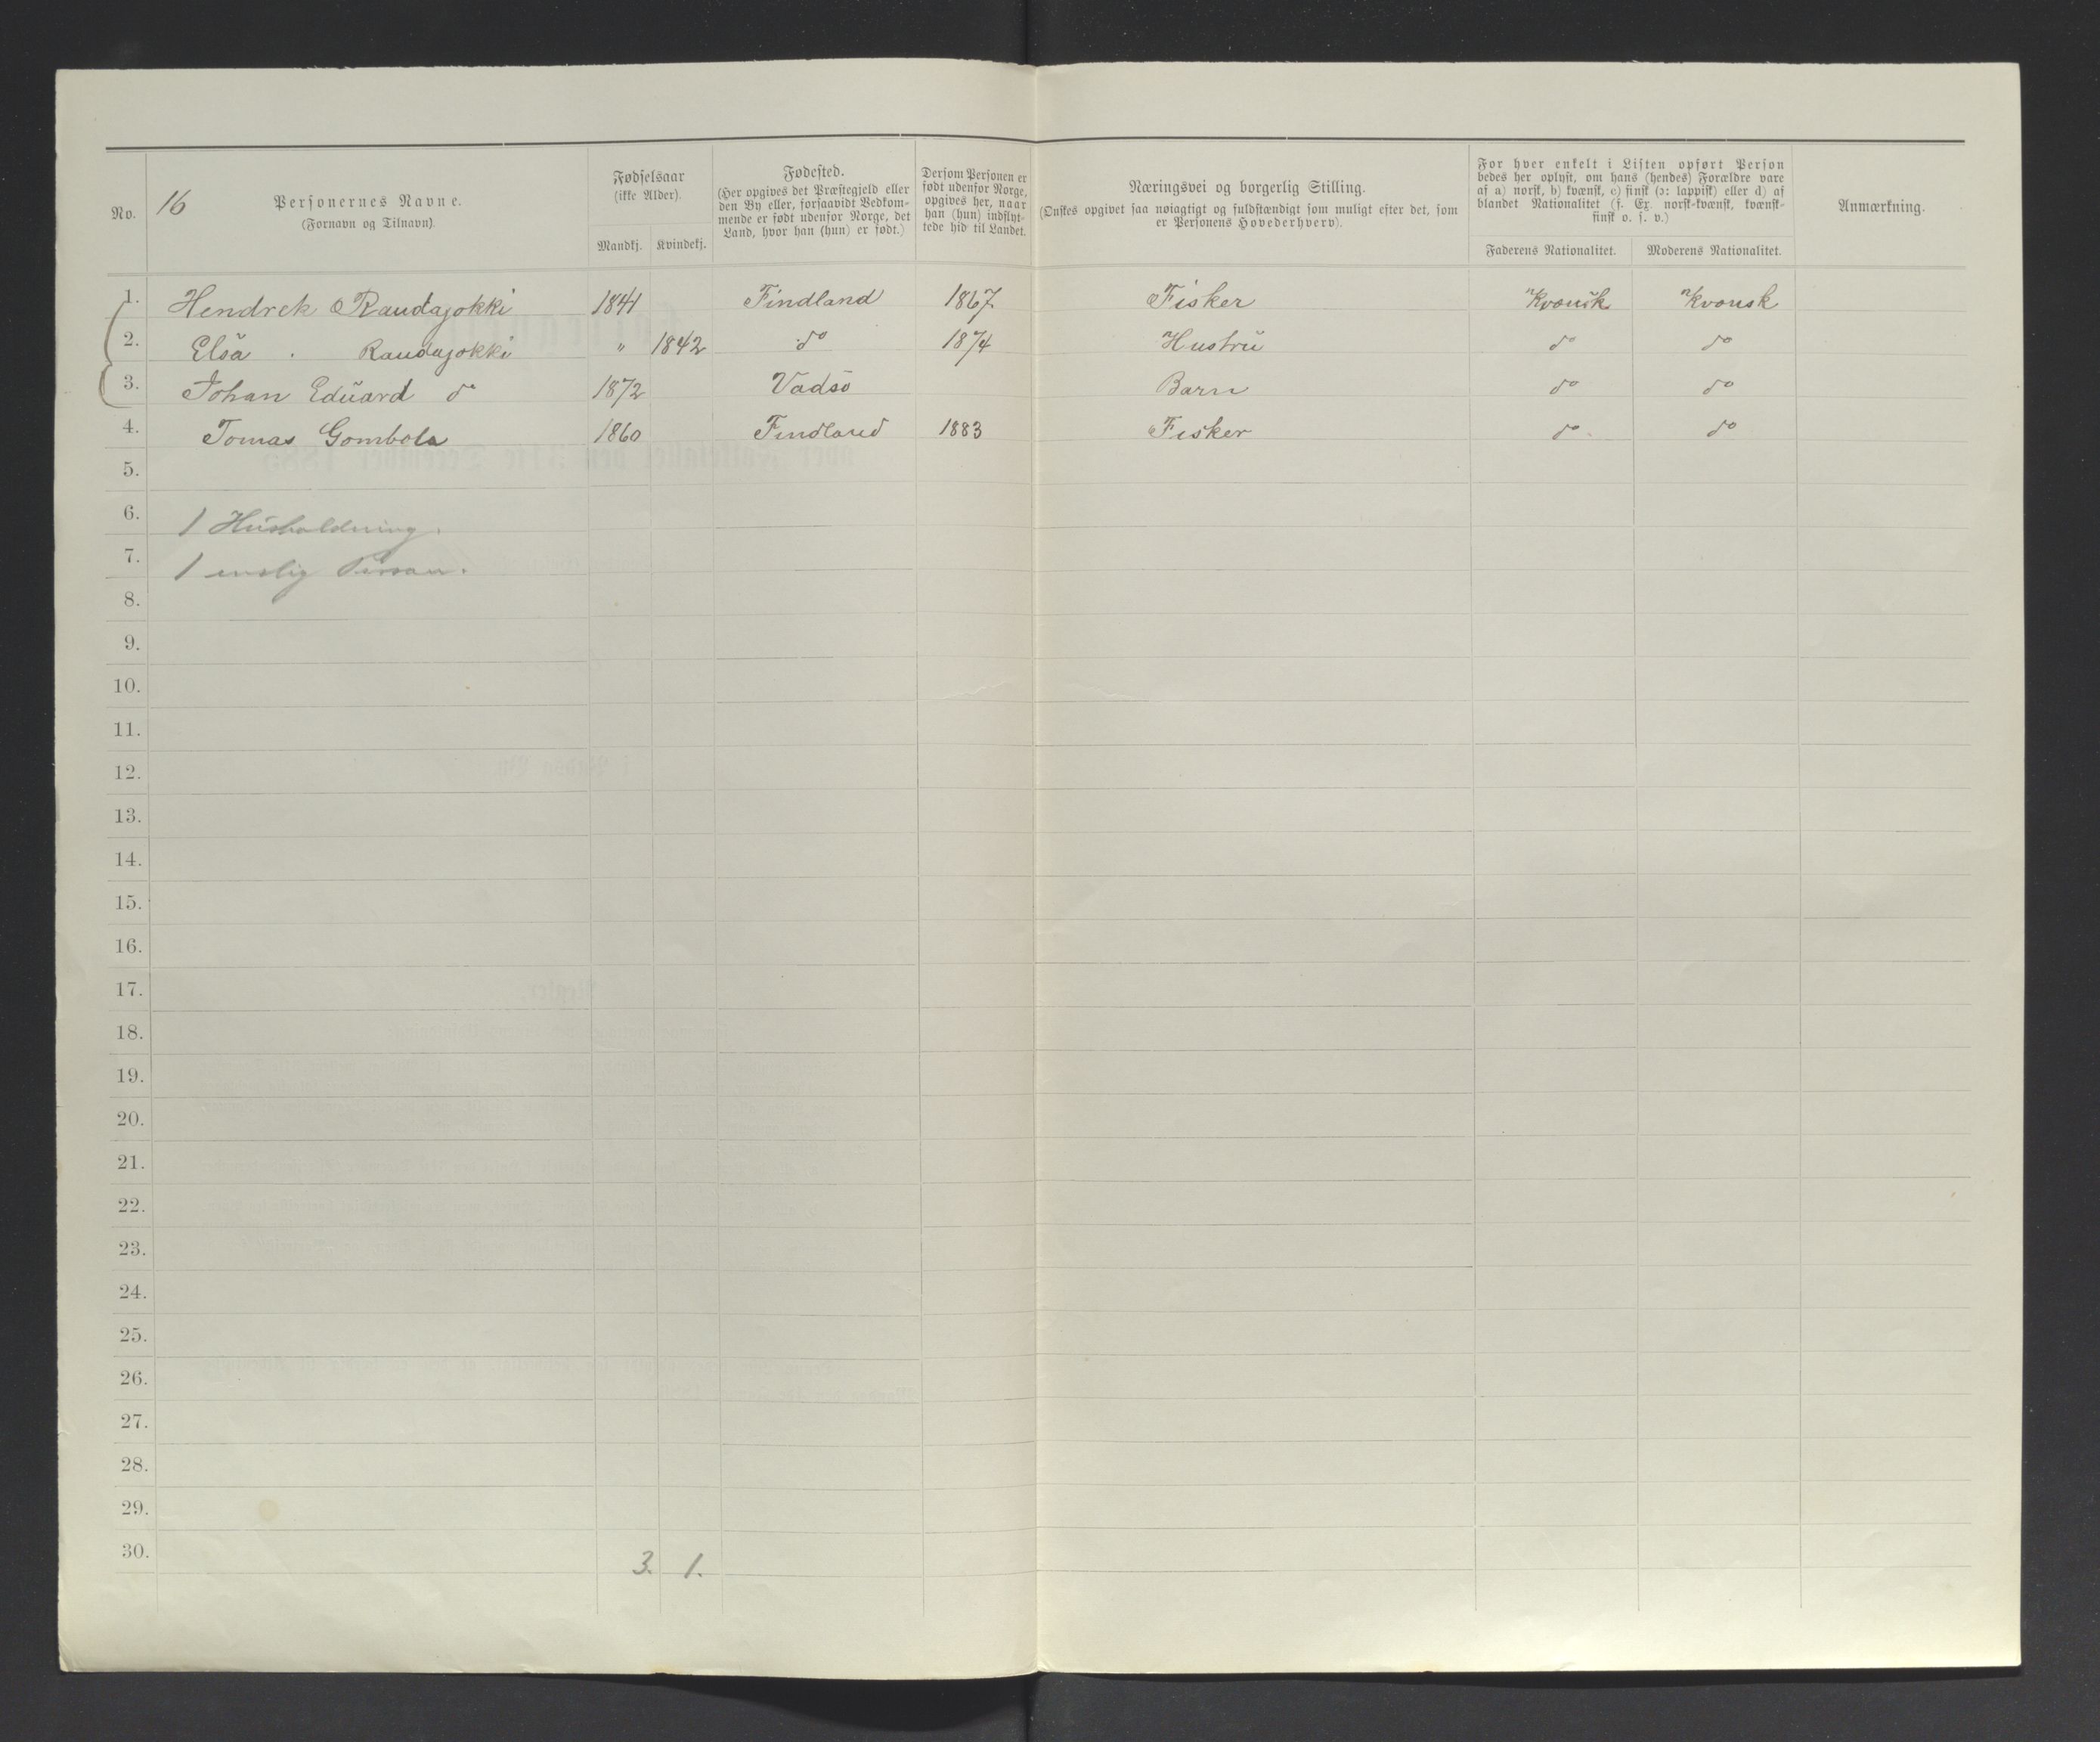 No. 16 Personernes Navne.
(Fornavn og Tilnavn).
Fødselsaar
(ikke Alder).
Mandkj. Kvindekj.
Fødested.
(Her opgives det Præstegjeld eller
den By eller, forsaavidt Vedkom-
mende er født udenfor Norge, det
Land, hvor han (hun) er født.)
Dersom Personen er
født udenfor Norge,
opgives her, naar
han (hun) indflyt-
tede hid til Landet.
Næringsvei og borgerlig Stilling.
(Ønskes opgivet saa nøiagtigt og fuldstændigt som muligt efter det, som
er Personens Hovederhverv).
For hver enkelt i Listen opført Person
bedes her oplyst, om hans (hendes) Forældre vare
af a) norsk, b) kvænsk, c) finsk (ɔ: lappisk) eller d) af
blandet Nationalitet (f. Ex. norsk-kvænsk, kvænsk-
finsk o. s. v.)
Faderens Nationalitet. Moderens Nationalitet.
Anmærkning.
1. Hendrek Raudajokki 1841 Findland 1867 Fisker Kvænsk Kvænsk
2. Elsa Raudajokki " 1842 do 1874 Hustru do do
3. Johan Eduard do 1872 Vadsø Barn do do
4. Tomas Gombola 1860 Findland 1883 Fisker do do
5.
6. 1 Husholdning.
7. 1 enslig Person.
8.
9.
10.
11.
12.
13.
14.
15.
16.
17.
18.
19.
20.
21.
22.
23.
24.
25.
26.
27.
28.
29.
30. 3. 1.